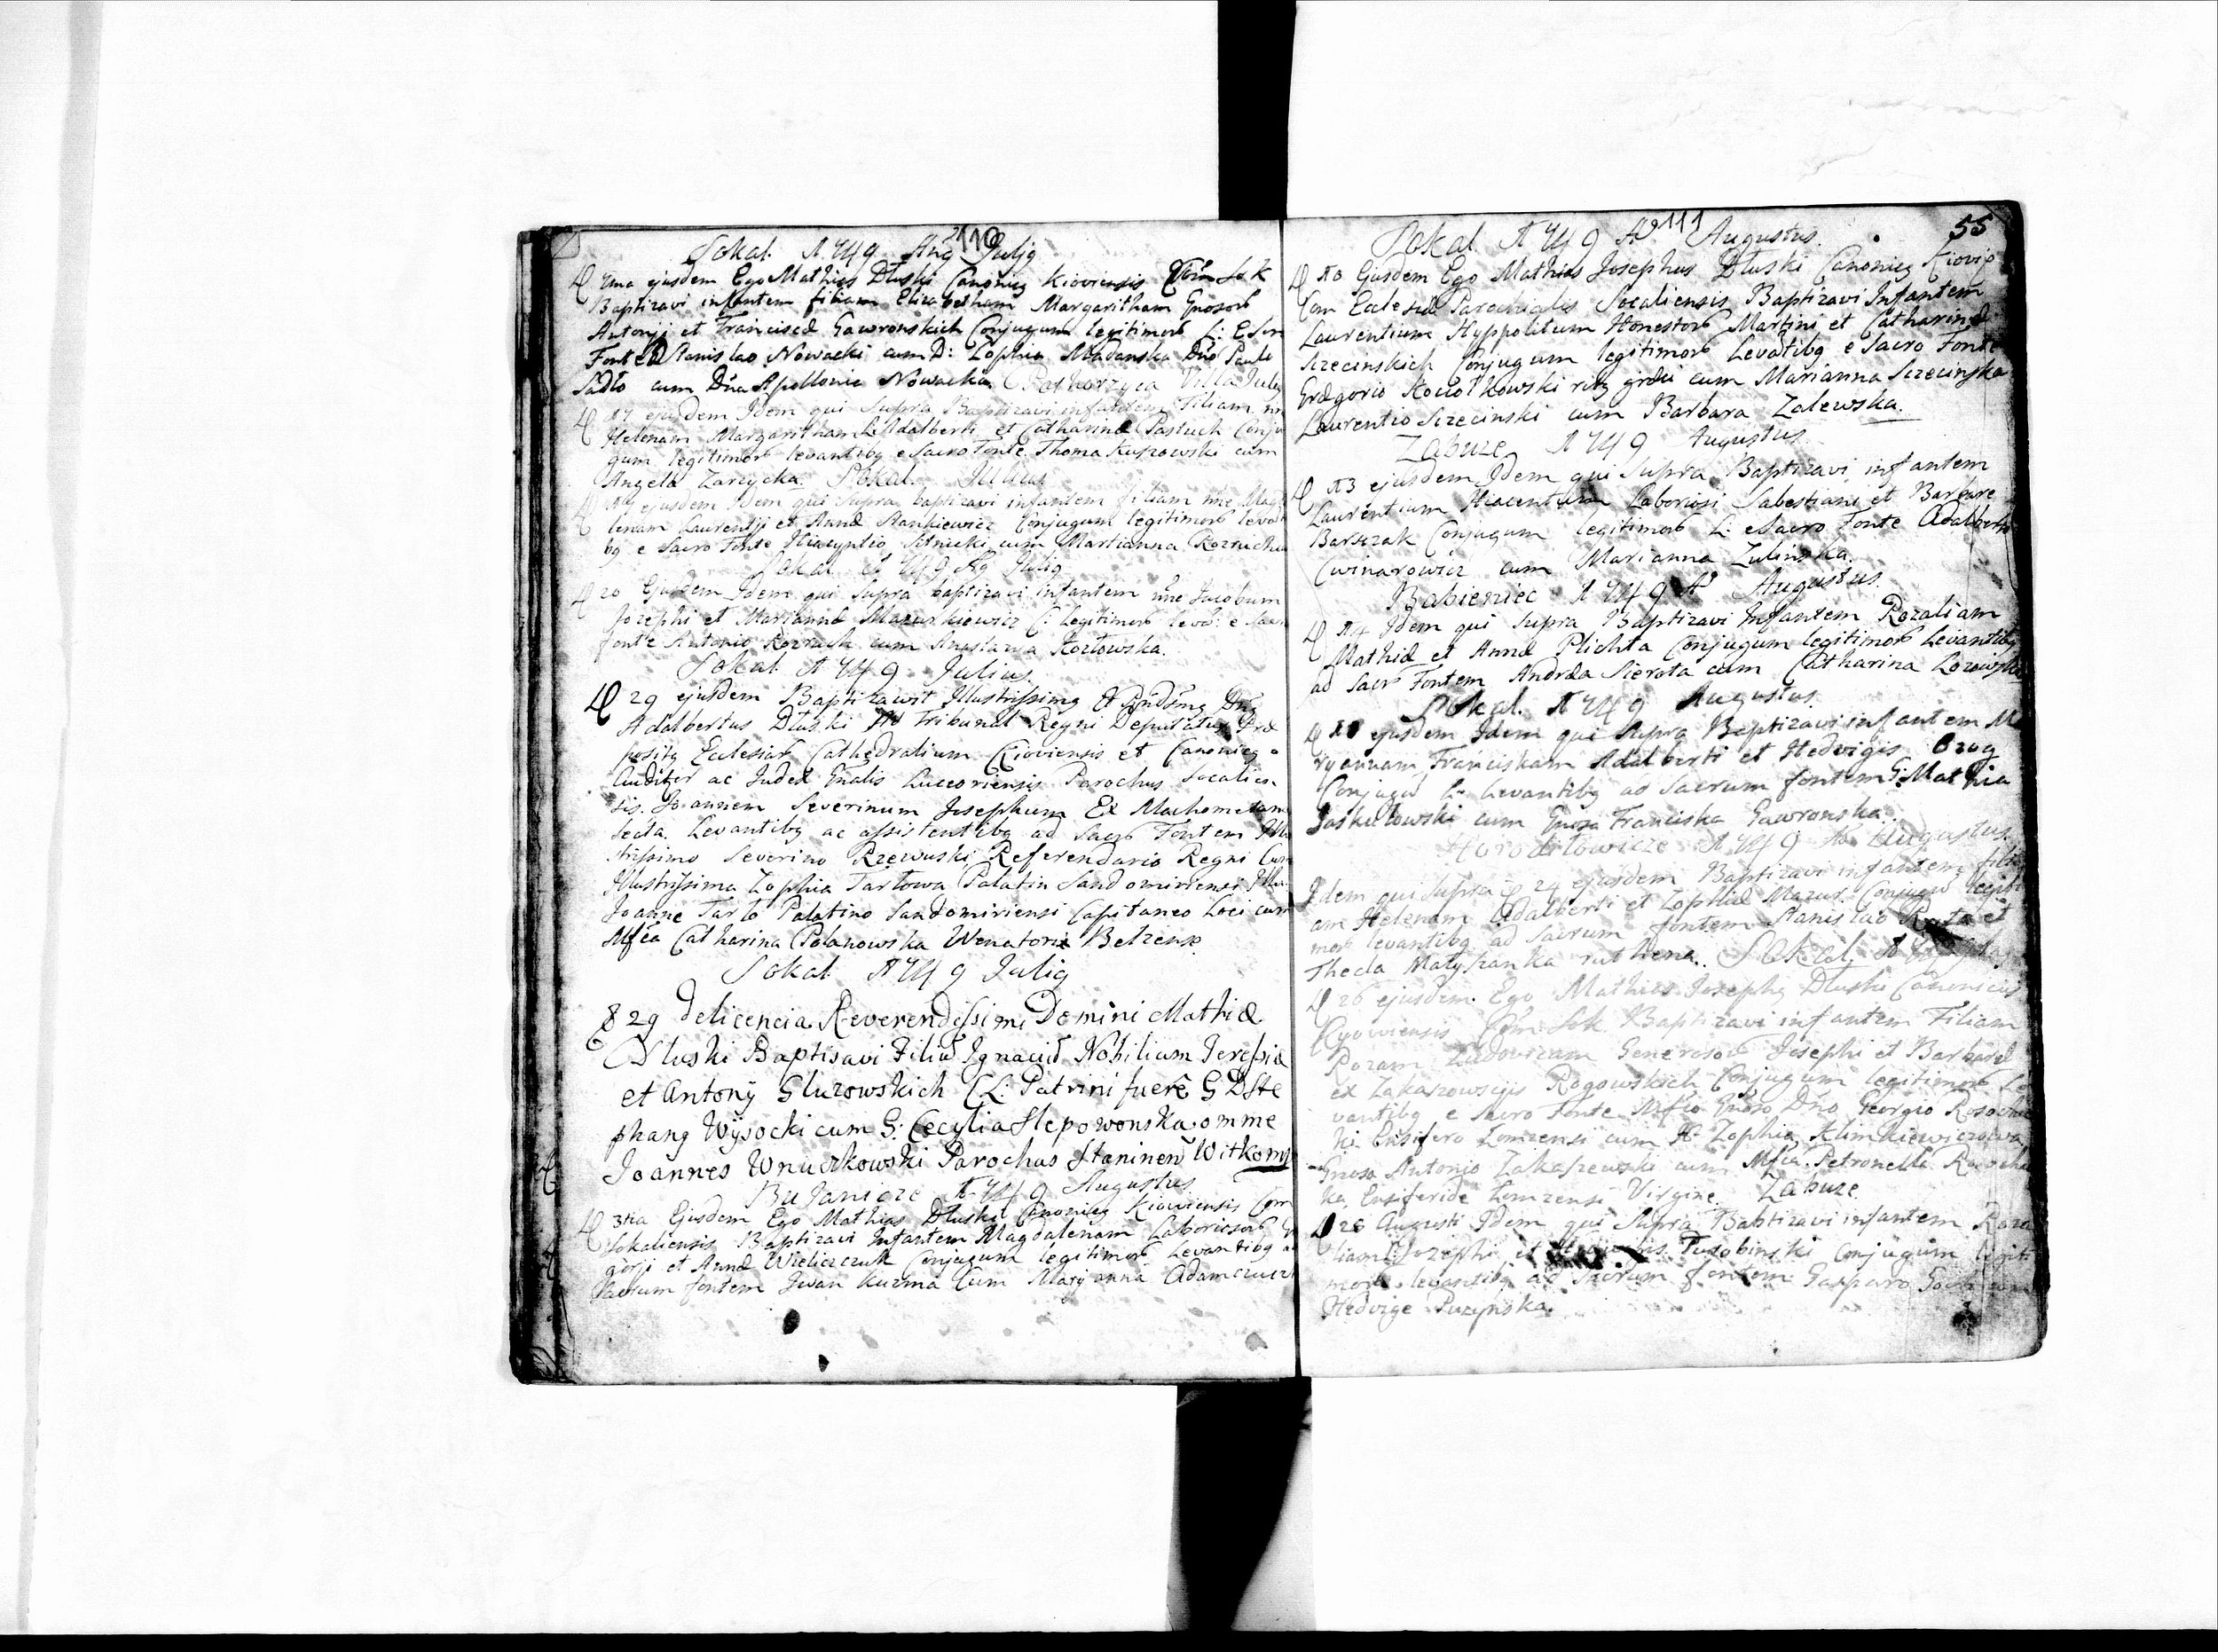 110
Sokal A 1749 Julij
ma ejusdem Ego Mathias Dłuski Canonicq Kioviensis Com Sok
Baptizavi infantem filiam Elizabetham Margaritham Gnosorb
Antonij et Franciscæ Gawronskich Conjugum legitimorb L: E Sen
Fonte D Stanislao Nowacki cum D: Zophia Madanska Dno Paulo
Sadło cum Dna Apollonia Nowacka Parhorzyca Villa July
17 ejusdem Idem qui Supra Baptizavi infantem Filiam nn
Helenam Margaritham L: Adalberti et Catharinæ Pastuch Conju
gum legitimorb levantibq e Sacro Fonte Thoma Kupowski cum
Angela Zarzycka. Sokal. Julius
ejusdem Idem qui Supra baptizavi infantem filiam nne Mag
lenam Laurentji et Annæ Stankiewicz Conjugum legitimorb levan
bq e Sacro Fonte Hiacyntio Sitnicki cum Martianna
Sokal A 1749 Julij
20 Ejusdem Idem qui Supra baptizavi Infantem nne Jacobum
Josephi et Mariannæ Mazurkiewicz C: legitimorb leva: e Sacro
fonte Antonio Roznach cum Anastazia Kozłowska.
Sokal A 1749 Julius.
29 ejusdem Baptizavit Illustrissimq et Rndsmq Dnq
Adalbertus Dłuski Ad Tribunal Regni Deputatus Præ
positq Ecclesiarb Cathedralium Kioviensis et Canonicq
Auditor ac Judex Gnalis Luceoriensis Parochus Socalien
sis. Joannem Severinum Josephum Ex Machometana
Secta. Levantibq ac assistentibq ad Sacrb Fontem Illu
strissimo Severino Rzewuski Referendario Regni Cum
Illustrissima Zophia Tarłowa Palatin Sandomiriensi Illu
Joanne Tarło Palatino Sandomiriensi Capitaneo Loci cum
Mfca Catharina Polanowska Wenatoris Belzense
Sokal A 1749 Julij
29 de licencia Reverendissimi Domini Mathiæ
Dłuski Baptisavi Filiu Ignaciu Nobilium Teressiæ
et Antony Gluzowskich C L: Patrini fuere G D Ste
phanq Wysocki cum G: Cecylia Slepowonska omme
Joannes Wnuczkowski Parochus Staninen Witkom
Bujanicze A 1749 Augustus
3tia Ejusdem Ego Mathias Dłuski Canonicq Kioviensis Com
Sokaliensis Baptizavi Infantem Magdalenam Laboriosorb
gorji et Annæ Wieliczuk Conjugum legitimorb Levantibq a
Sacrum fontem Iwan Kuzma Cum Maryanna Adamczucz
111
55
Sokal A 1749 Augustus.
10 Ejusdem Ego Mathias Josephus Dłuski Canonicq Kiovie
Com Ecclesiæ Parochialis Socaliensis Baptizavi Infantem
Laurentium Hyppolitum Honestorb Martini et Catharinæ
Szczecinskich Conjugum legitimorb Levatibq e Sacro Fonte
Grægorio Kociołkowski ritq græci cum Marianna Szczecinska
Laurentio Szczecinski cum Barbara Zalewska.
Zabuze A 1749 Augustus
13 ejusdem Idem qui Supra Baptizavi infantem
Laurentium Hiacentum Laboriosi Sabestiani et Barbare
Barszczak Conjugum legitimorb L: e Sacro Fonte Adalberto
Cwinarowicz cum Marianna Zulinska.
Babieniec A 1749 Augustus.
14 Idem qui Supra Baptizavi Infantem Rozaliam
Mathiæ et Annæ Plichta Conjugum legitimorb Levantibq
ad Sacrb Fontem Andræa Sierota cum Catharina Lozowska
Sokal. A 1749 Augustus.
ejusdem Idem qui Supra Baptizavi infantem Ma
ryannam Franciskam Adalberti et Hedvigis Brog
Conjugu L: levantibq ad Sacrum fontem G: Mathia
Jaskułowski cum Gnosa Franciska Gawronska.
A 1749 Augustus.
Idem qui Supra 24 ejusdem Baptizavi infantem fili
am Helenam Adalberti et Zophiæ Mazur Conjugu legiti
morb levantibq ad Sacrum fontem Stanislao Rata et
Thecla Matyszanka ruthena. Sokal. A
26 ejusdem Ego Mathias Josephq Dłuski Canonicus
Kyoviensis Com Sok Baptizavi infantem Filiam
Rozam Ludovicam Generosorb Josephi et Barbaræ
ex Zakrzowscijs Rogowskich Conjugum legitimorb Le
vantibq e Sacro Fonte Mfco Gnoso Dno Georgio Rosochac
ki Ensifero Lomzensi cum Zophia Klimkiewiczowa
Gnoso Antonio Zakaszewski cum Mfca Petronella
ka Ensiferide Lomzensi Virgine. Zabuze
26 Augusti Idem qui Supra Babtizavi infantem Roza
liam Jozephi et Turobinski Conjugum legiti
morb levantibq ad Sacrum fontem Gasparo
Hedvige Puzynska